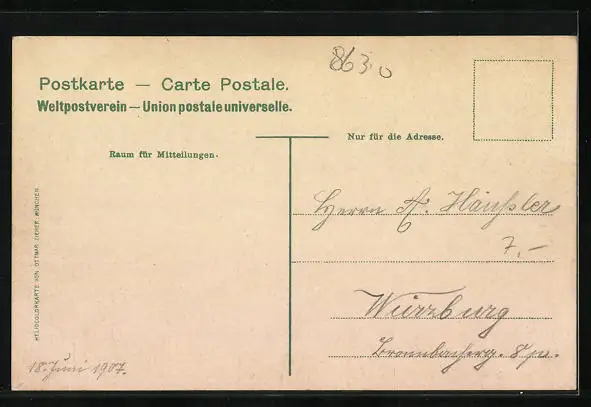 8630
Postkarte — Carte Postale.
Weltpostverein — Union postale universelle.
Nur für die Adresse.
Raum für Mitteilungen.
Herrn A. Häußler
7.-
Würzburg
8
HELIOCOLORKARTE VON OTTMAR ZIEHER, MÜNCHEN
18. Juni 1907.